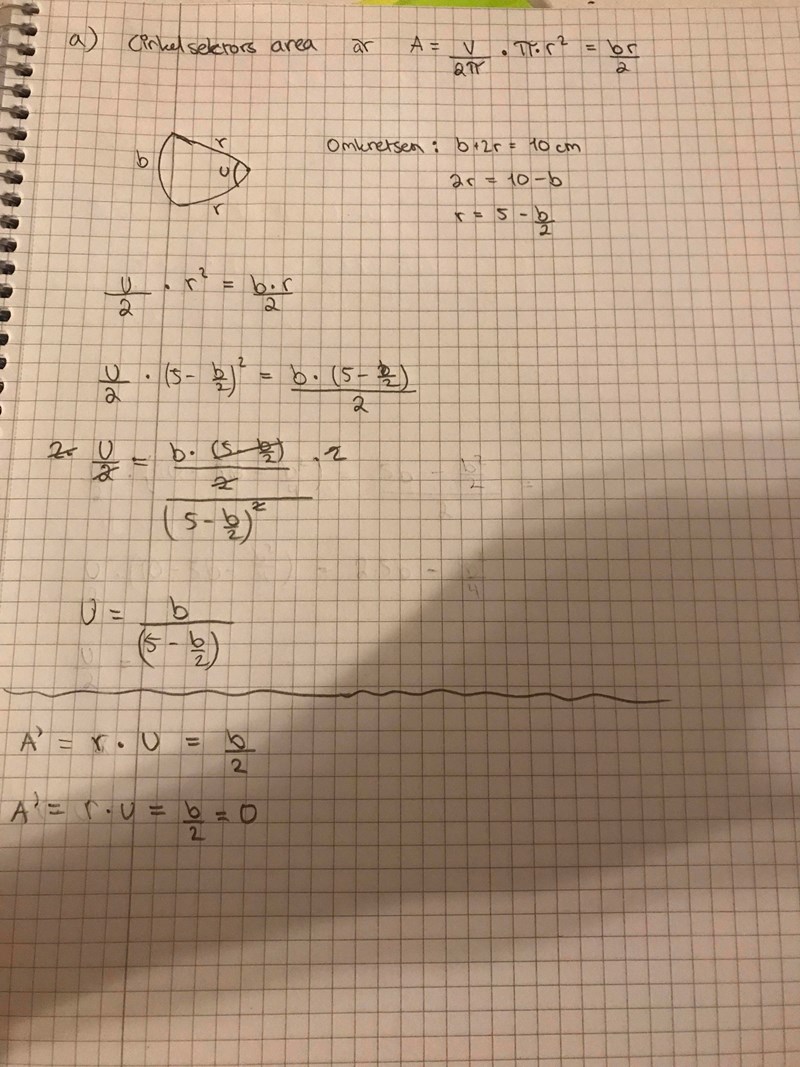 a) Cirkelsektors area är A = v/2π · π·r² = br/2
b r v r
Omkretsen: b+2r = 10 cm
2r = 10 - b
r = 5 - b/2
v/2 · r² = b·r/2
v/2 · (5 - b/2)² = b·(5 - b/2)/2
2· v/2 = (b·(5 - b/2)/2)/(5 - b/2)² · 2
v = b/(5 - b/2)
A' = r · v = b/2
A' = r · v = b/2 = 0